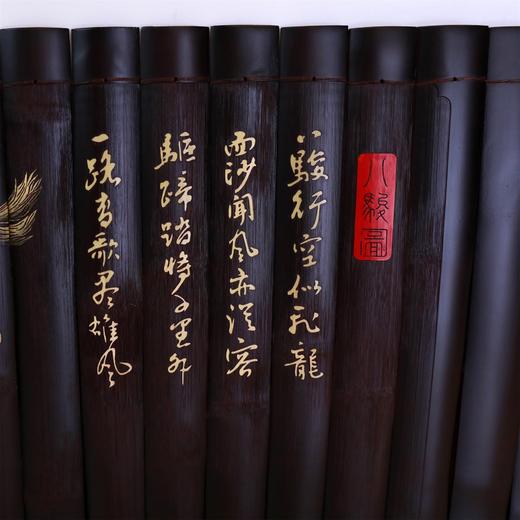 八駿圖
八駿行空似飛龍
雨沙聞風亦從容
驅蹄踏將千里外
一路高歌盡雄風